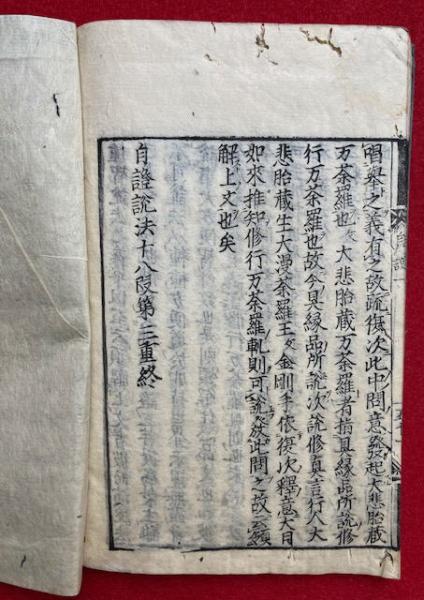 唱舉之義有之故疏復次此中問意發起大悲胎藏
万荼羅也大悲胎藏万荼羅者指具縁品所説修
行万荼羅也故今具縁品所説次説修真言行人大
悲胎藏生大漫荼羅王文金剛手依復次釋意大日
如來推知修行万荼羅軌則可説然此問之故云領
解上文也矣
自證説法十八段第三重終
自證